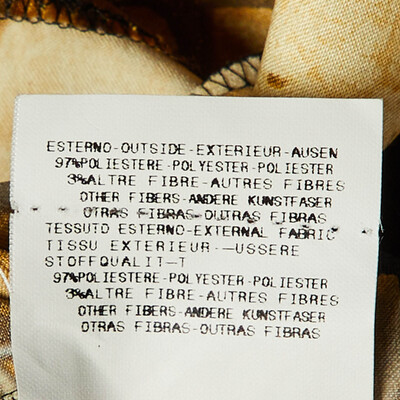 ESTERNO-OUTSIDE-EXTERIEUR-AUSEN
97%POLIESTERE-POLYESTER-POLIESTER
3%ALTRE FIBRE-AUTRES FIBRES
OTHER FIBERS-ANDERE KUNSTFASER
OTRAS FIBRAS-OUTRAS FIBRAS
TESSUTO ESTERNO-EXTERNAL FABRIC
TISSU EXTERIEUR-—USSERE
STOFFQUALIT—T
97%POLIESTERE-POLYESTER-POLIESTER
3%ALTRE FIBRE-AUTRES FIBRES
OTHER FIBERS-ANDERE KUNSTFASER
OTRAS FIBRAS-OUTRAS FIBRAS